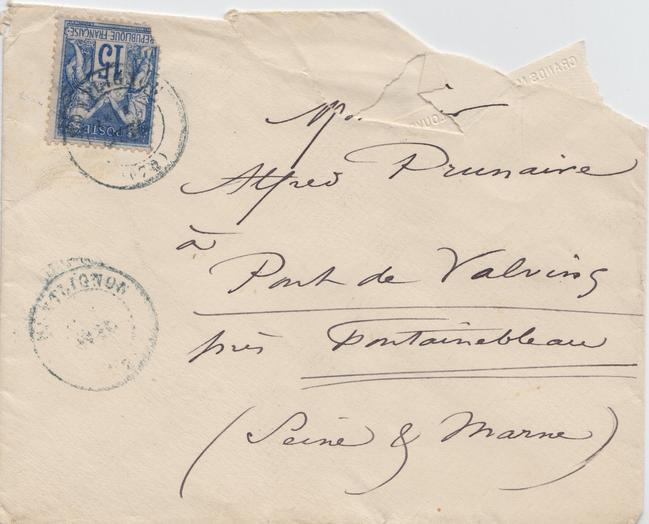 RÉPUBLIQUE FRANÇAISE
15
POSTES
Alfred Prunaire
à
Pont de Valvins
près Fontainebleau
(Seine & Marne)
MONTLIGNON